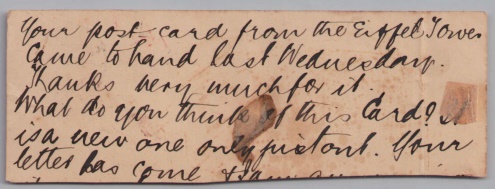 Your post-card from the Eiffel Tower
came to hand last Wednesday.
Thanks very much for it.
What do you think of this Card? It
is a new one only just out. Your
letter has come &